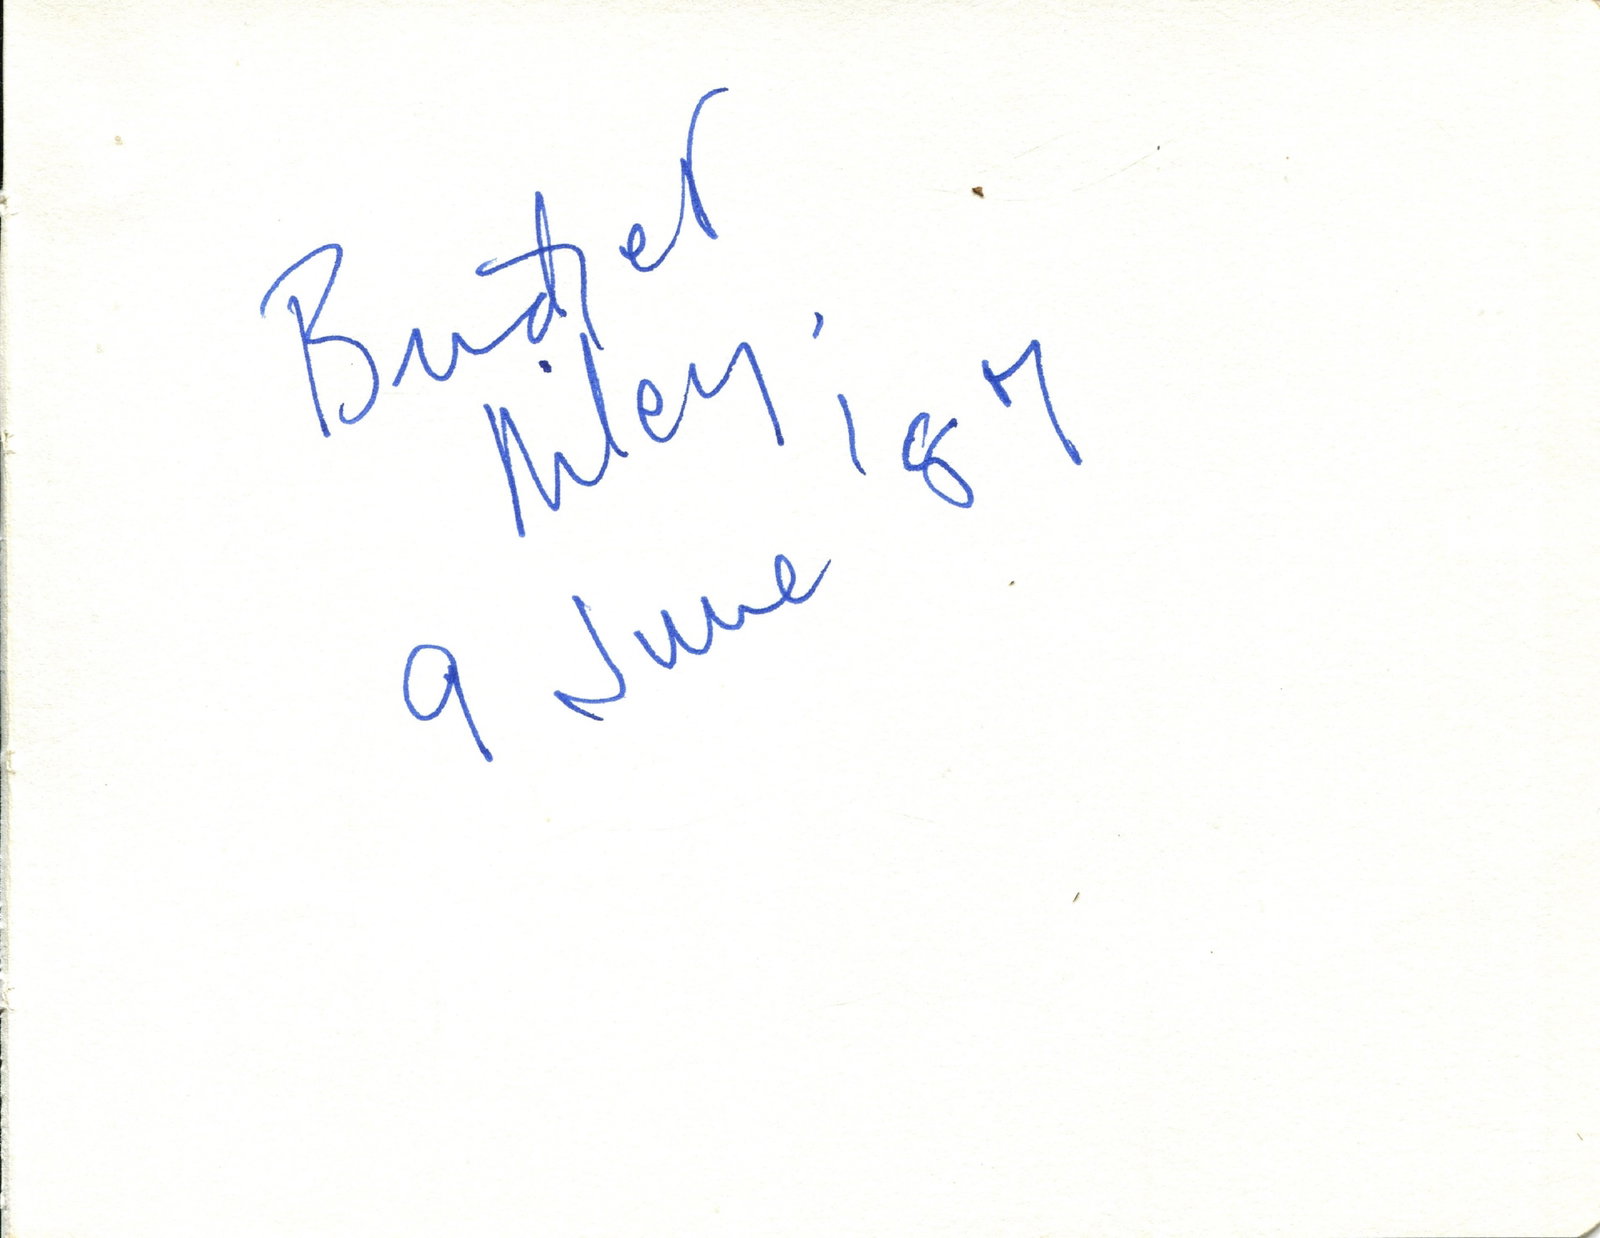 Bridget
Riley '87
9 June